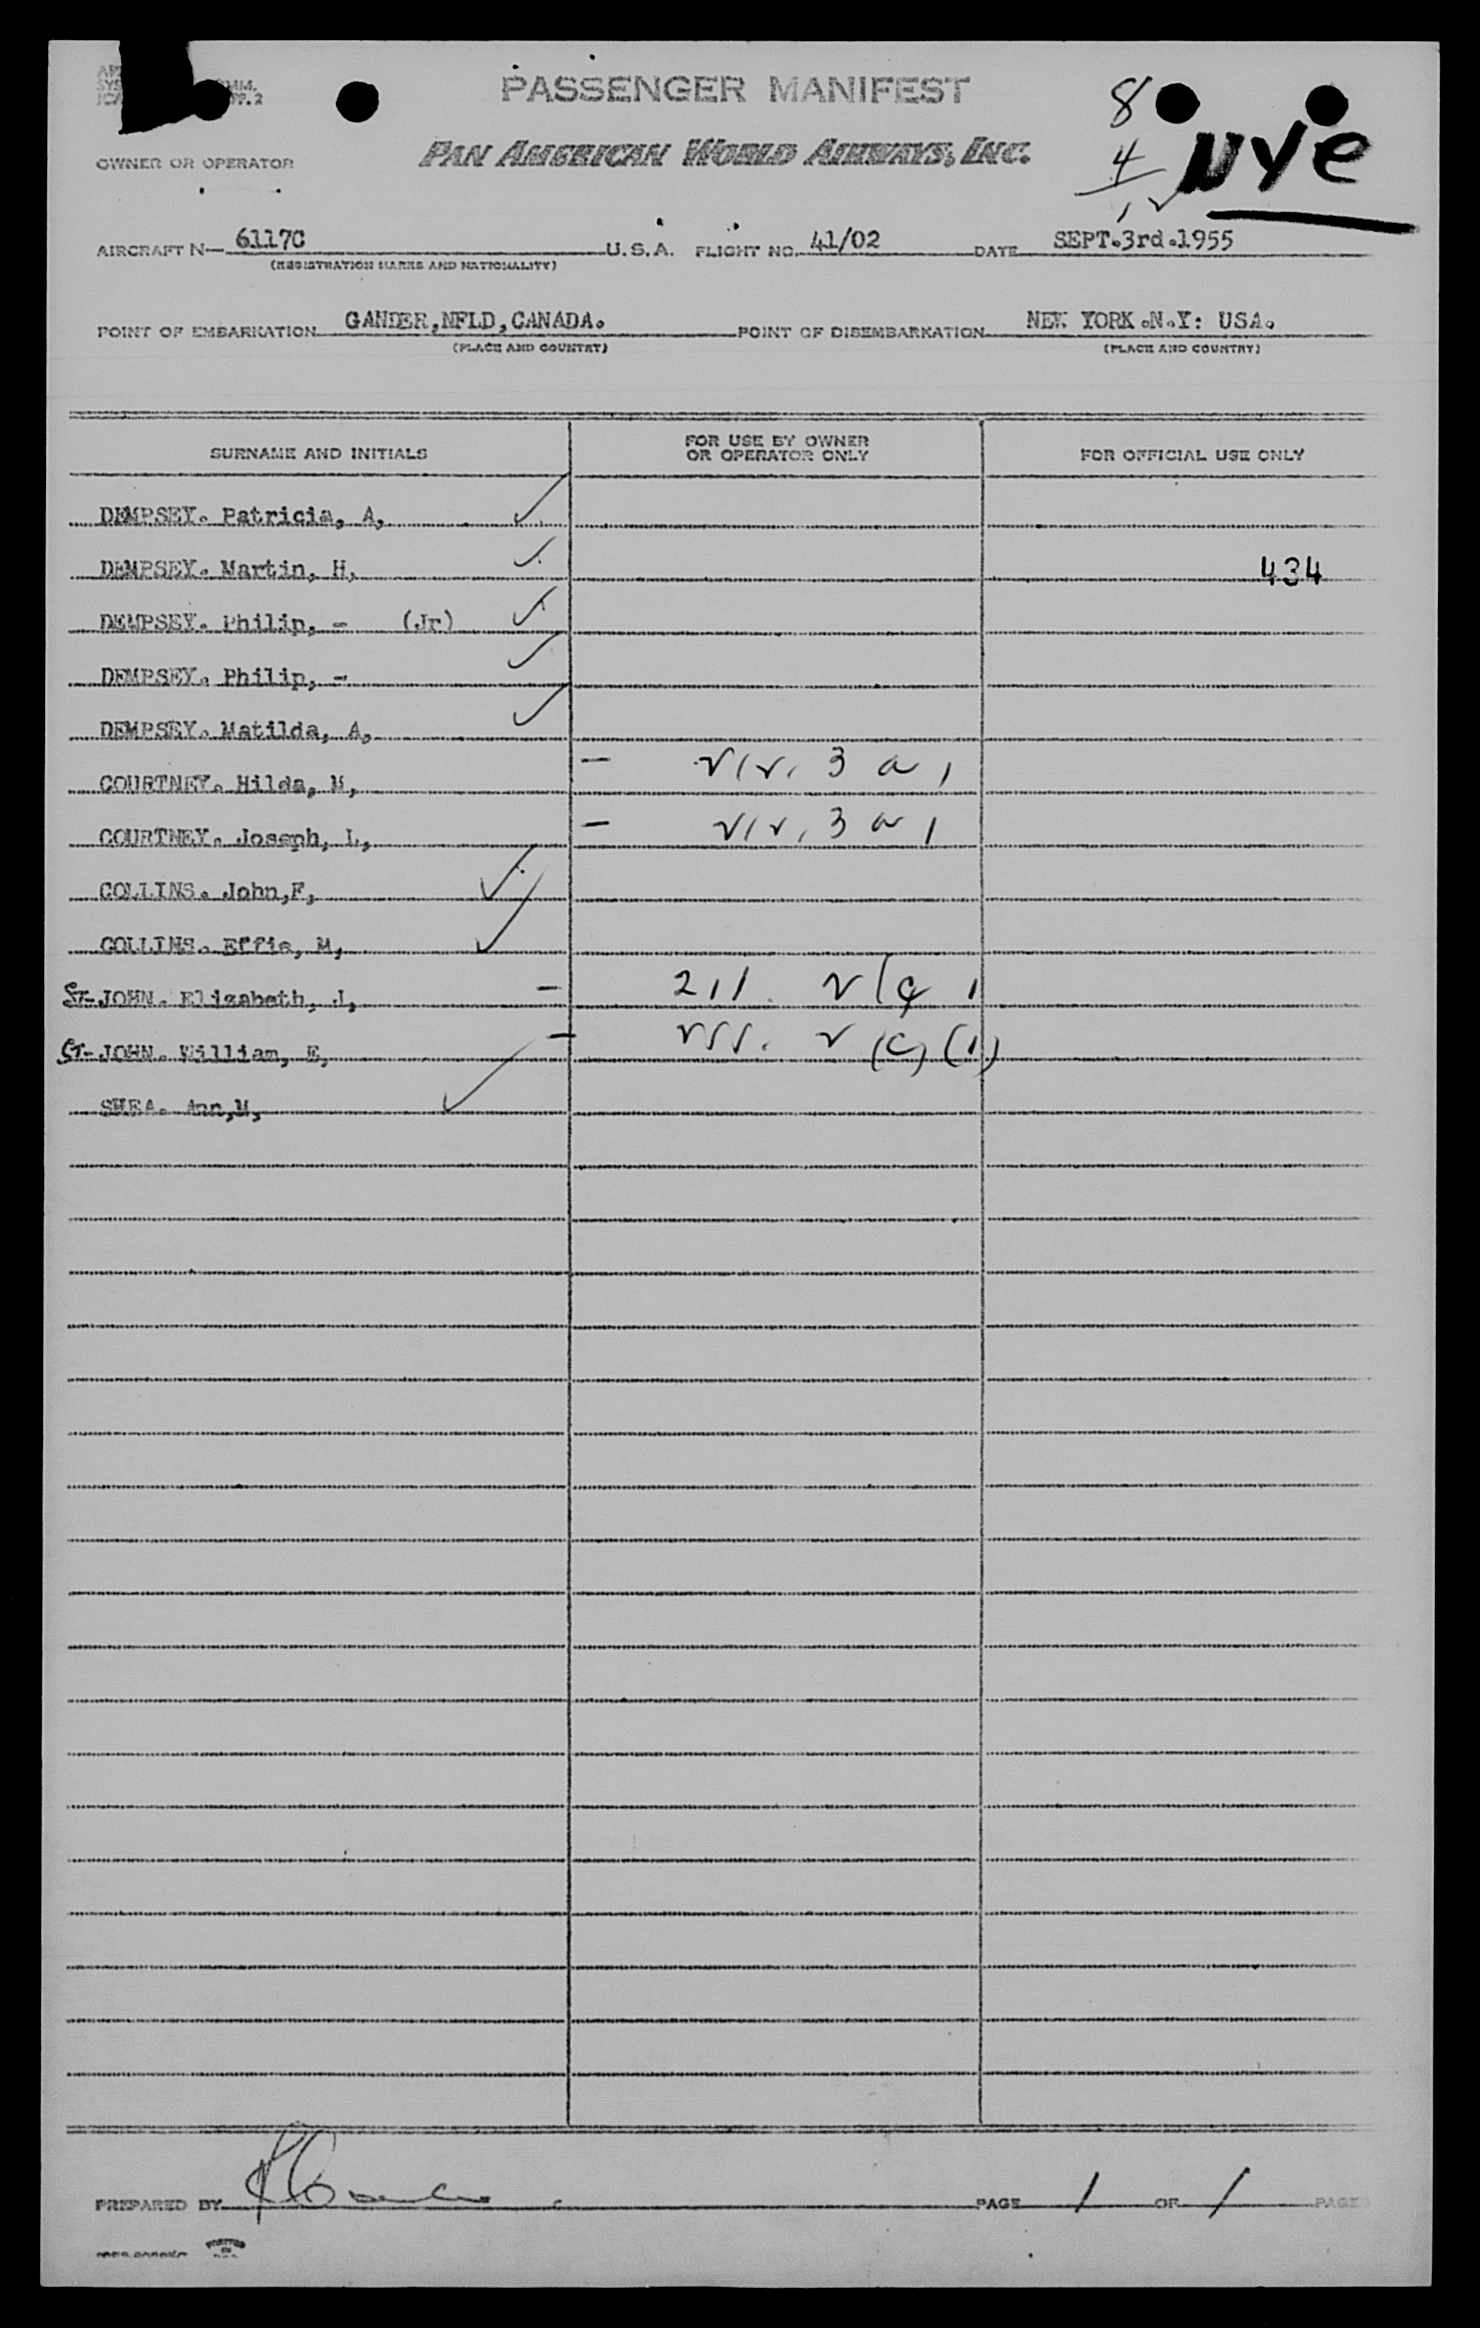 PASSENGER MANIFEST
8
NYE
OWNER OR OPERATOR
PAN AMERICAN WORLD AIRWAYS, INC.
4
AIRCRAFT N— 6117C U.S.A. FLIGHT NO. 41/02 DATE SEPT.3rd.1955
(REGISTRATION MARKS AND NATIONALITY)
POINT OF EMBARKATION GANDER,NFLD,CANADA. POINT OF DISEMBARKATION NEW YORK.N.Y: USA.
(PLACE AND COUNTRY) (PLACE AND COUNTRY)
SURNAME AND INITIALS FOR USE BY OWNER OR OPERATOR ONLY FOR OFFICIAL USE ONLY
DEMPSEY. Patricia, A,
DEMPSEY. Martin, H, 434
DEMPSEY. Philip, - (Jr)
DEMPSEY. Philip, -
DEMPSEY. Matilda, A,
COURTNEY. Hilda, M, -
COURTNEY. Joseph, L, -
COLLINS. John,F,
COLLINS. Effie, M,
ST- JOHN. Elizabeth, J, -
ST- JOHN. William, E, -
SHEA. Ann,M,
PREPARED BY PAGE 1 OF 1 PAGES
PRINTED IN